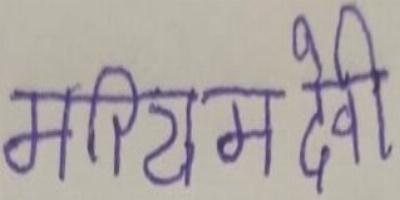 मरियम देवी